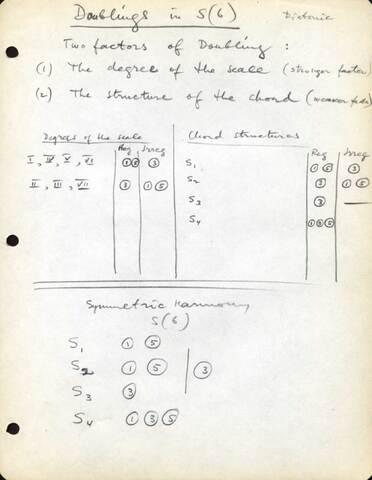 Doublings in S(6) Diatonic
Two factors of Doubling :
(1) The degree of the scale (stronger factor)
(2) The structure of the chord (weaker factor)
Degrees of the scale Chord structures
Reg Irreg Reg Irreg
I, IV, V, VI ① ⑤ ③ S₁ ① ⑤ ③
II, III, VII ③ ① ⑤ S₂ ③ ① ⑤
S₃ ③ —
S₄ ① ③ ⑤
Symmetric Harmony
S(6)
S₁ ① ⑤
S₂ ① ⑤ ③
S₃ ③
S₄ ① ③ ⑤